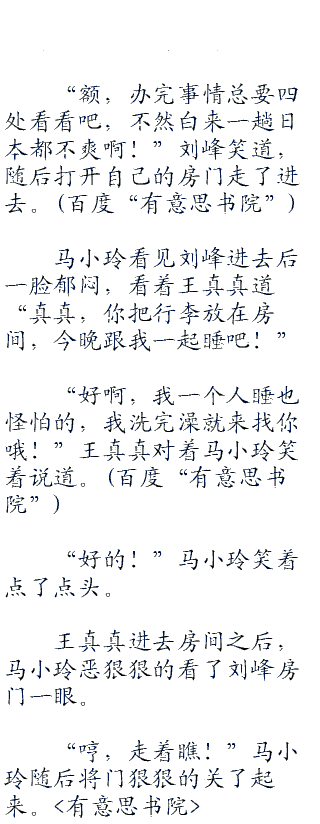 “额，办完事情总要四
处看看吧，不然白来一趟日
本都不爽啊！”刘峰笑道，
随后打开自己的房门走了进
去。(百度“有意思书院”)
马小玲看见刘峰进去后
一脸郁闷，看着王真真道
“真真，你把行李放在房
间，今晚跟我一起睡吧！”
“好啊，我一个人睡也
怪怕的，我洗完澡就来找你
哦！”王真真对着马小玲笑
着说道。(百度“有意思书
院”)
“好的！”马小玲笑着
点了点头。
王真真进去房间之后，
马小玲恶狠狠的看了刘峰房
门一眼。
“哼，走着瞧！”马小
玲随后将门狠狠的关了起
来。<有意思书院>